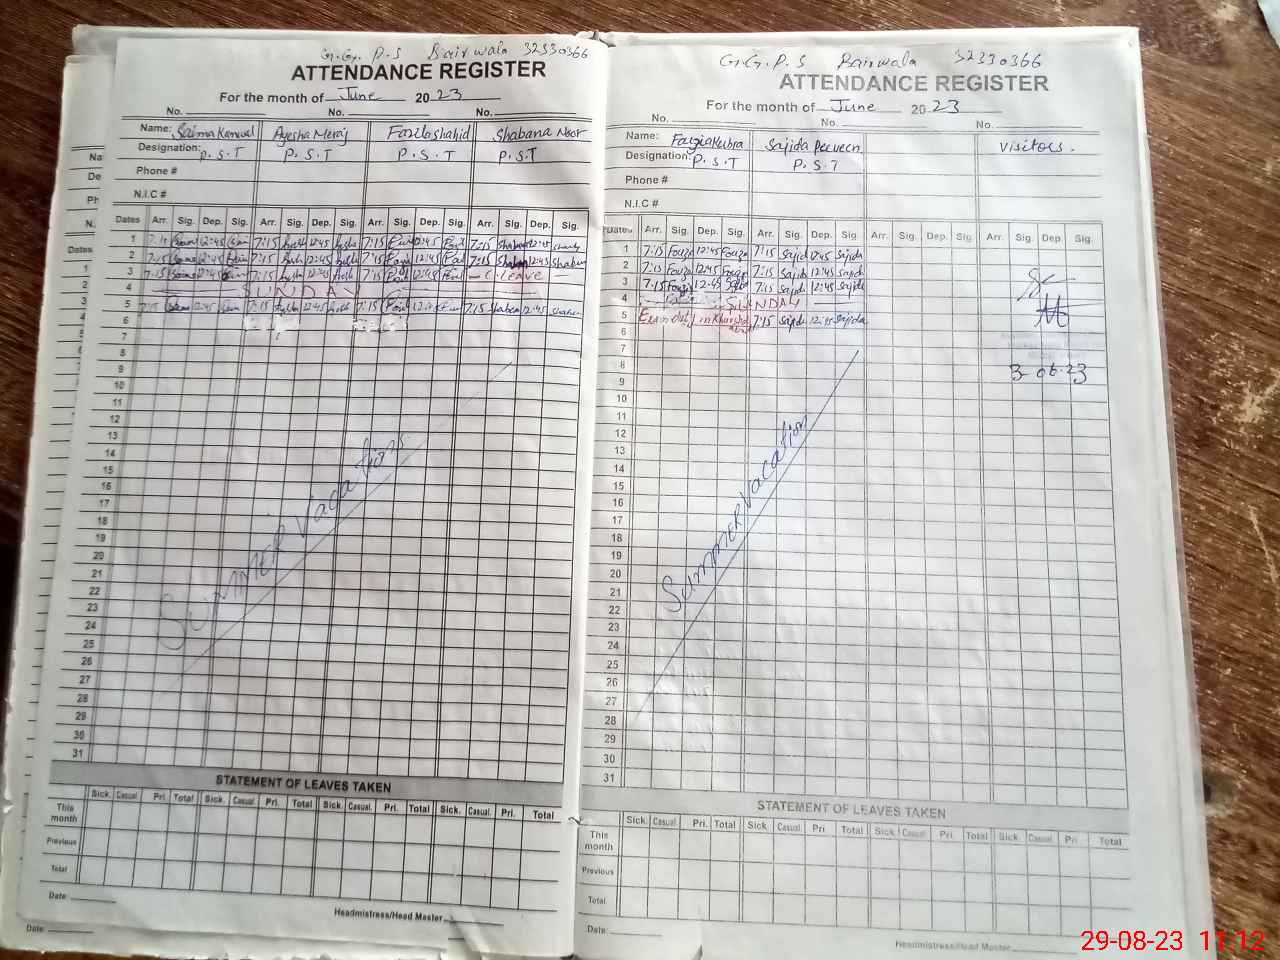 G.G. P.S Bairwala 32330366
ATTENDANCE REGISTER
For the month of June 2023
No. No. No.
Name: Saima Kanwal Ayesha Meraj Fazila shahid Shabana Noor
Designation: P.S.T P.S.T P.S.T P.S.T
Phone #
N.I.C #
Dates Arr. Sig. Dep. Sig. Arr. Sig. Dep. Sig. Arr. Sig. Dep. Sig. Arr. Sig. Dep. Sig.
1 7:15 12:45 7:15 12:45 7:15 12:45 7:15 12:45
2 7:15 12:45 7:15 12:45 7:15 12:45 7:15 12:45
3 7:15 12:45 7:15 12:45 7:15 C. Leave
4 SUNDAY
5 7:15 12:45 7:15 12:45 7:15 7:15 12:45
6
7
8
9
10
11
12
13
14
15
16
17
18
19
20
21
22
23
24
25
26
27
28
29
30
31
SUMMER Vacations
STATEMENT OF LEAVES TAKEN
Sick. Casual. Pri. Total Sick. Casual. Pri. Total Sick. Casual. Pri. Total Sick. Casual. Pri. Total
This month
Previous
Total
Date
Headmistress/Head Master
Date:
G.G.P.S Bairwala 32330366
ATTENDANCE REGISTER
For the month of June 2023
No. No. No.
Name: Fauzia Kubra Sajida Perveen visitors.
Designation: P.S.T P.S.T
Phone #
N.I.C #
Dates Arr. Sig. Dep. Sig. Arr. Sig. Dep. Sig. Arr. Sig. Dep. Sig. Arr. Sig. Dep. Sig.
1 7:15 Fouzia 12:45 Fouzia 7:15 Sajida 12:45 Sajida
2 7:15 Fouzia 12:45 Fouzia 7:15 Sajida 12:45 Sajida
3 7:15 Fouzia 12:45 7:15 Sajida 12:45 Sajida
4 SUNDAY
5 duty in 7:15 Sajida 12:45 Sajida
6
7
8
9
10
11
12
13
14
15
16
17
18
19
20
21
22
23
24
25
26
27
28
29
30
31
3-06-23
Summer Vacation
STATEMENT OF LEAVES TAKEN
Sick. Casual. Pri. Total Sick Casual. Pri. Total Sick. Casual. Pri. Total Sick. Casual. Pri. Total
This month
Previous
Total
Date:
Headmistress/Head Master
29-08-23 11:12